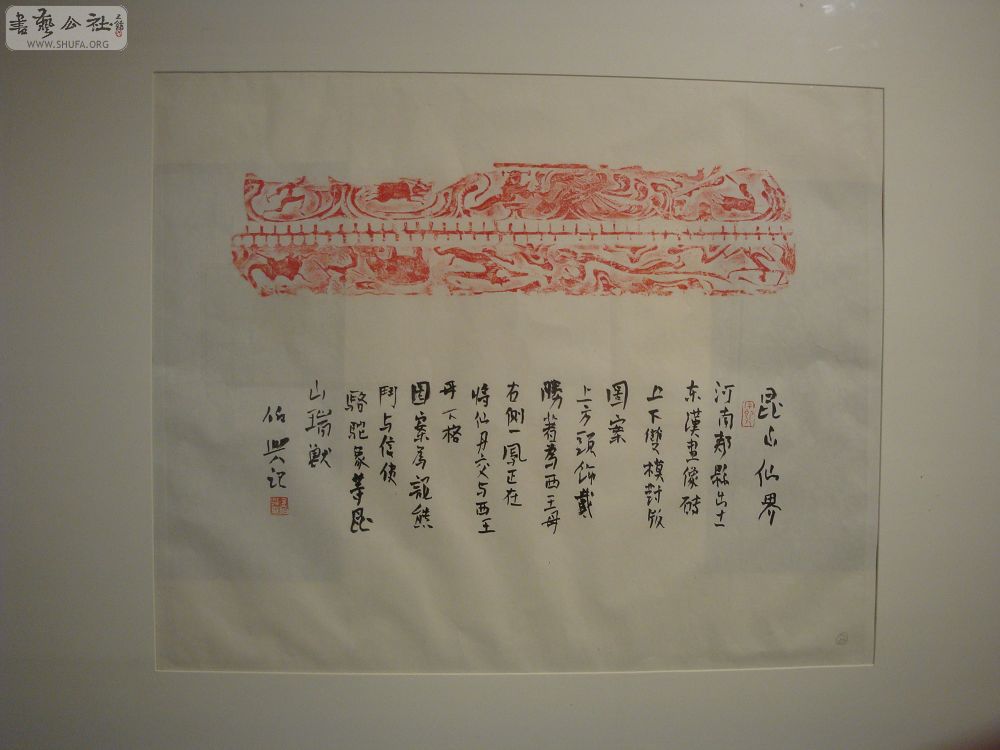 昆山仙界
河南郏縣出土
东漢画像磚
上下雙模對版
圖案
上方頭飾戴
勝者為西王母
右側一鳳正在
將仙丹交与西王
母下格
圖案為龍熊
鬥与信使
駱駝象等昆
山瑞獸
佑興记
書藝公社
WWW.SHUFA.ORG